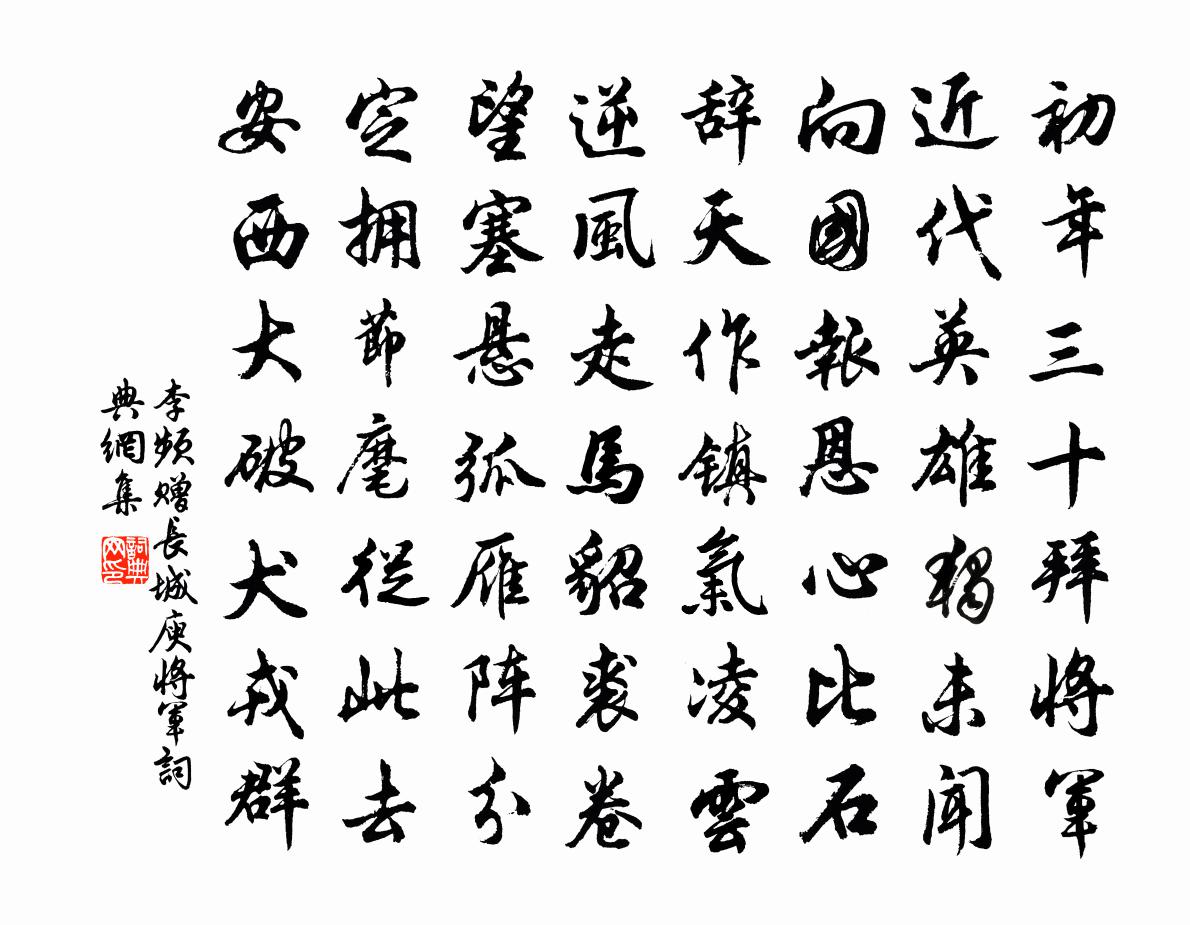 初年三十拜將軍
近代英雄獨未聞
向國報恩心比石
辞天作镇氣凌雲
逆風走馬貂裘卷
望塞悬弧雁阵分
定拥節麾從此去
安西大破犬戎群
李频赠長城庾將軍詞
典網集
詞典网印